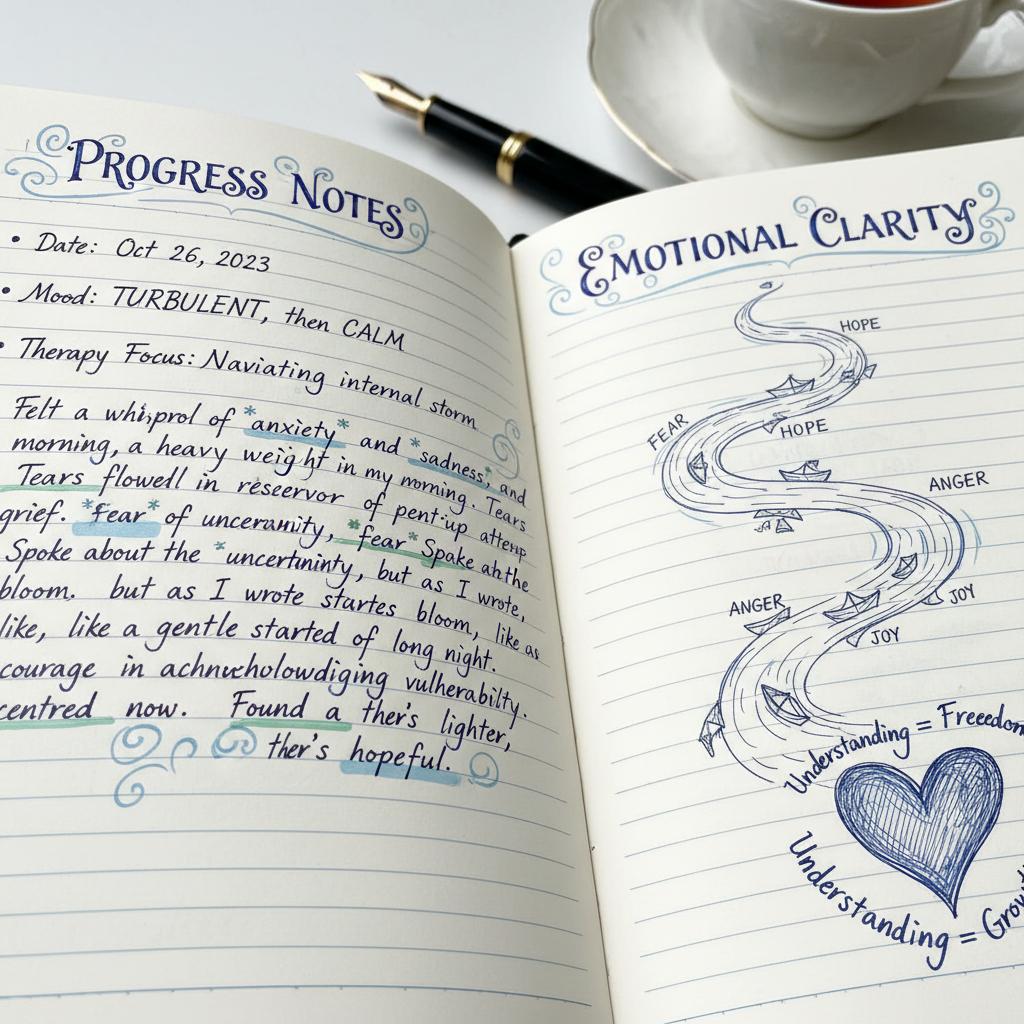 PROGRESS NOTES
• Date: Oct 26, 2023
• Mood: TURBULENT, then CALM
• Therapy Focus: Naviating internal storm
Felt a whisprol of *anxiety* and *sadness, and
morning, a heavy weight in my morning. Tears
Tears flowedl in reseervor of pent-up attenp
grief. *Fear* of unceramity, *fear* Spake ah the
Spoke about the *uncertninty, but as I wrote,
bloom. but as I wrote startes bloom, like as
like, like a gentle started of long night.
courage in achnucholowdiging vulherabilty.
centred now. Found a ther's lighter,
ther's hopeful.
EMOTIONAL CLARITY
HOPE
FEAR
HOPE
ANGER
ANGER
JOY
JOY
Understanding = Freeedom
Understanding = Growt